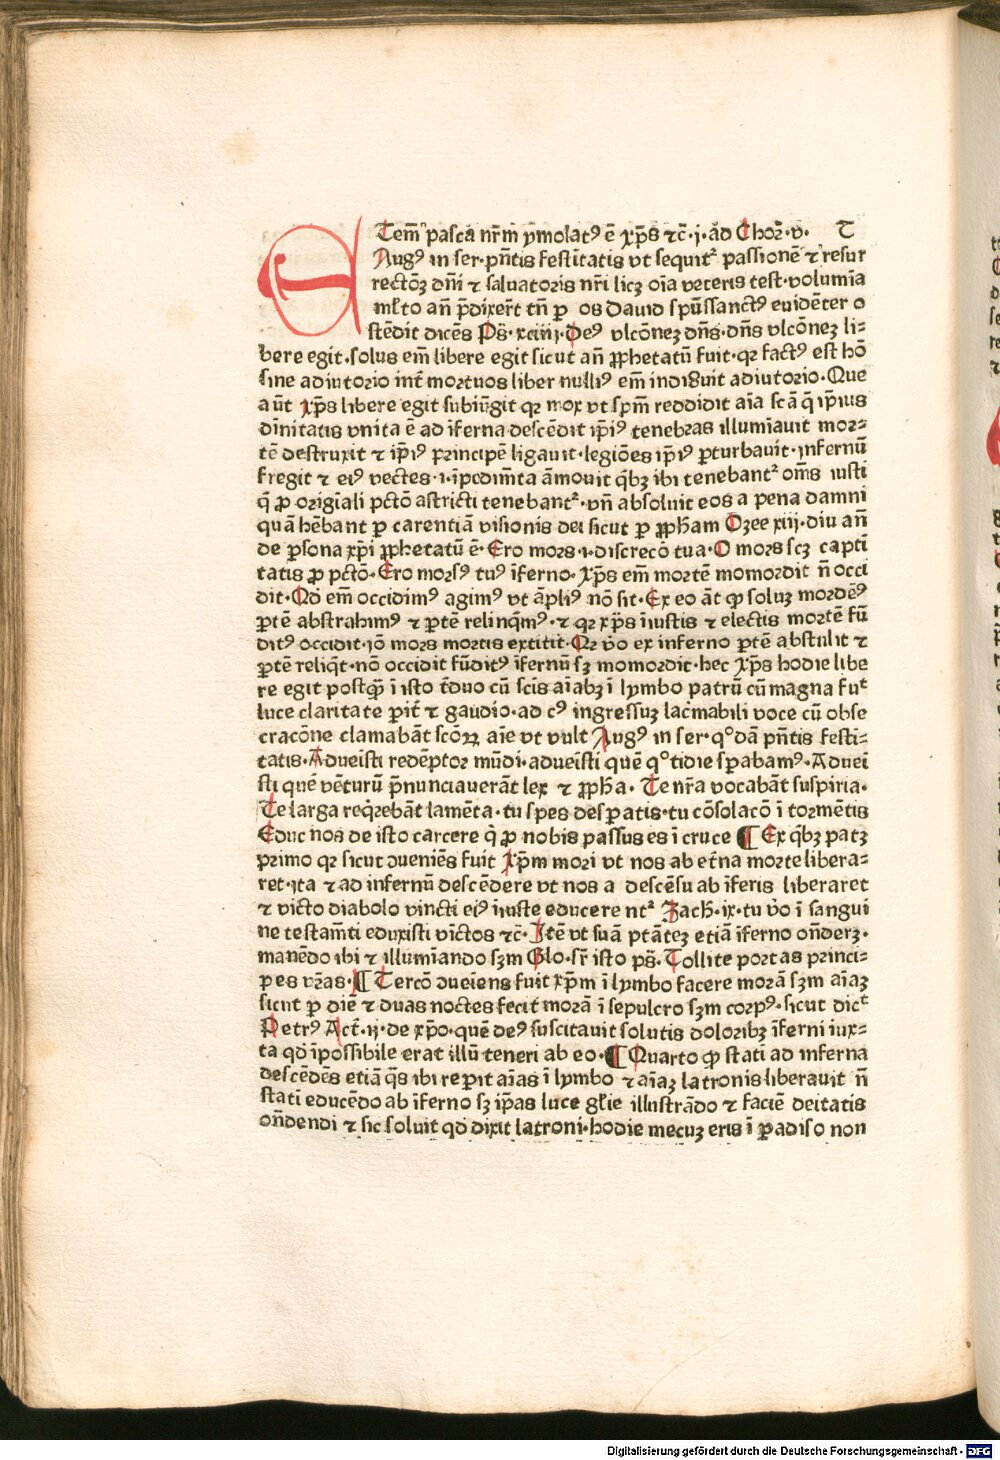 Tem̄ pasca nr̄m ymolatꝰ ē xp̄s ⁊c̄·j·ad Chor̄·v· T
Augꝰ in ser·pn̄tis festītatis vt sequit᷑ passionē ⁊ resur
rectōꝫ dn̄i ⁊ saluatoris nr̄i licꝫ oīa veteris test·volumīa
ml̄to an̄ p̄dixer̄t tn̄ ꝑ os Dauid spūssanctꝰ euidēter o
stēdit dicēs Ps̄·xciiij·Deꝰ vlcōneꝫ dn̄s·dn̄s vlcōneꝫ li⸗
bere egit·solus em̄ libere egit sicut an̄ ꝓphetatū fuit·qꝛ factꝰ est hō
sine adiutorio int̄ mortuos liber nulliꝰ em̄ indiguit adiutorio·Que
aūt xp̄s libere egit subiūgit qꝛ mox vt spm̄ reddidit aīa scā q̄ ip̄ius
dīnitatis vnita ē ad īferna descēdit ip̄iꝰ tenebras illumīauit mor⸗
tē destruxit ⁊ ip̄iꝰ principē ligauit·legiōes ip̄iꝰ ꝑturbauit·jnfernū
fregit ⁊ eiꝰ vectes·i·īpedim̄ta āmouit q̄bꝫ ibi tenebant᷑ om̄s iusti
q̄ ꝓ origīali pctō astricti tenebant᷑·vn̄ absoluit eos a pena damni
quā hēbant ꝑ carentiā visionis dei sicut ꝑ ꝓpham Ozee xiij·diu an̄
de ꝑsona xp̄i ꝓphetatū ē·Ero mors·i·discrecō tua·O mors scꝫ capti
tatis ꝓ pctō·Ero morsꝰ tuꝰ īferno·xp̄s em̄ mortē momordit n̄ occi
dit·Qd̄ em̄ occidimꝰ agimꝰ vt āpliꝰ nō sit·Ex eo āt ꝙ soluꝫ mordēꝰ
ꝑtē abstrahimꝰ ⁊ ꝑtē relinq̄mꝰ·⁊ qꝛ xp̄s ī iustis ⁊ electis mortē fū
ditꝰ occidit·iō mors mortis extitit·Qꝛ v̄o ex inferno ꝑtē abstulit ⁊
ꝑtē reliq̄t·nō occidit fūditꝰ īfernū sꝫ momordit·hec xp̄s hodie libe
re egit postꝙ̄ ī isto t̄duo cū scīs aīabꝫ ī lymbo patrū cū magna fut̄
luce claritate ꝑit̄ ⁊ gaudio·ad cꝰ ingressuꝫ lac̄mabili voce cū obse
cracōne clamabāt scōꝝ aīe vt vult Augꝰ in ser·q°dā pn̄tis festī⸗
tatis·Adueīsti redēptor mūdi·adueīsti quē q°tidie sꝑabamꝰ·Aduei
sti quē vēturū p̄nunciauerāt lex ⁊ ꝓph̄a·Te nr̄a vocabāt suspiria·
Te larga req̄rebāt lamēta·tu spes desꝑatis·tu cōsolacō ī tormētis
Educ nos de isto carcere q̄ ꝓ nobis passus es ī cruce ¶ Ex q̄bꝫ patꝫ
primo qꝛ sicut ↄueniēs fuit xp̄m mori vt nos ab et̄na morte libera⸗
ret·ita ⁊ ad infernū descēdere vt nos a descēsu ab īferis liberaret
⁊ victo diabolo vincti eiꝰ īiuste educerent᷑ Zach̄·ix·tu v̄o ī sangui
ne testam̄ti eduxisti vīctos ⁊c̄·Itē vt suā ptāteꝫ etiā īferno on̄derꝫ·
manēdo ibi ⁊ illumīando sꝫm Glo·sr̄ isto ps̄·Tollite portas princi⸗
pes vr̄as·¶ Tercō ↄueīens fuit xp̄m ī lymbo facere morā sꝫm aīaꝫ
sicut ꝑ diē ⁊ duas noctes fecit morā ī sepulcro sꝫm corpꝰ·sicut dict̄
Petrꝰ Act̄·ij·de xp̄o·quē deꝰ suscitauit solutis doloribꝫ īferni iux⸗
ta qd̄ īpossibile erat illū teneri ab eo·¶ Quarto ꝙ stati ad inferna
descēdēs etiā q̄s ibi reperit aīas ī lymbo ⁊ aīaꝫ latronis liberauit n̄
stati educēdo ab īferno sꝫ ip̄as luce gl̄ie illustrādo ⁊ faciē deitatis
on̄dendi ⁊ sic soluit qd̄ dixit latroni·hodie mecuꝫ eris ī ꝑadiso non
Digitalisierung gefördert durch die Deutsche Forschungsgemeinschaft - DFG